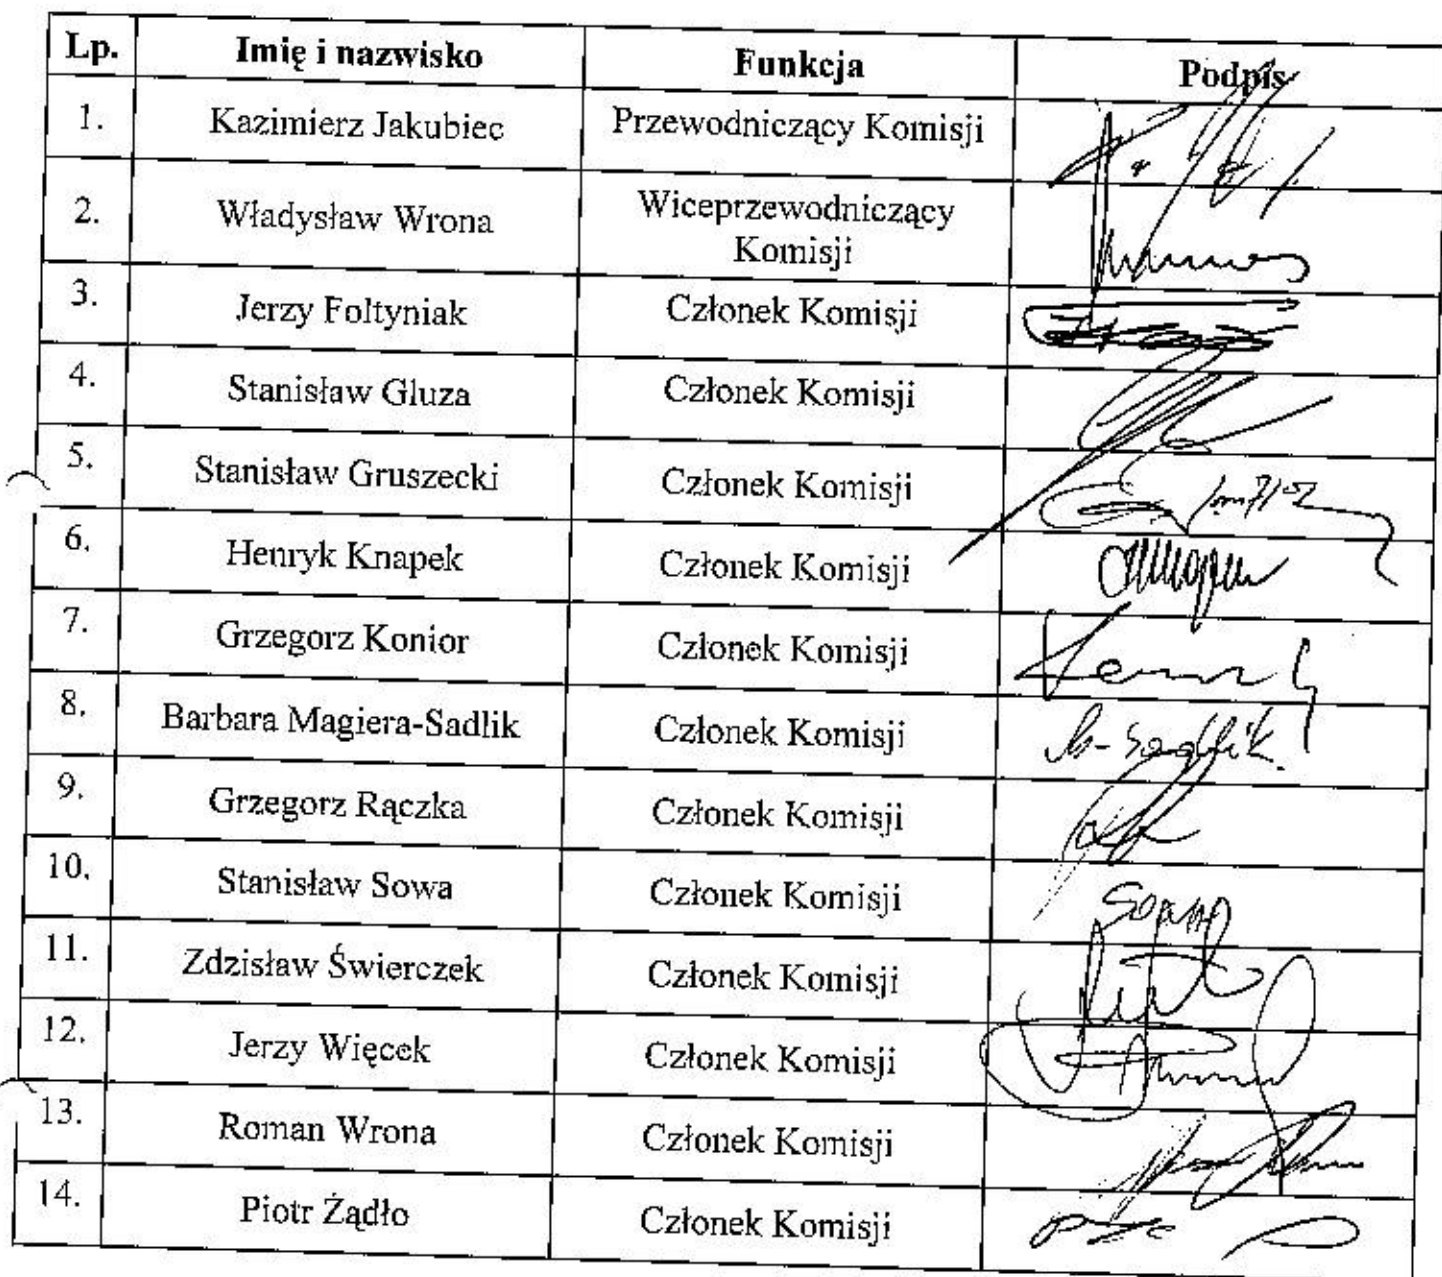 Lp. Imię i nazwisko Funkcja Podpis
1. Kazimierz Jakubiec Przewodniczący Komisji
2. Władysław Wrona Wiceprzewodniczący
Komisji
3. Jerzy Foltyniak Członek Komisji
4. Stanisław Gluza Członek Komisji
5. Stanisław Gruszecki Członek Komisji
6. Henryk Knapek Członek Komisji
7. Grzegorz Konior Członek Komisji
8. Barbara Magiera-Sadlik Członek Komisji
9. Grzegorz Rączka Członek Komisji
10. Stanisław Sowa Członek Komisji
11. Zdzisław Świerczek Członek Komisji
12. Jerzy Więcek Członek Komisji
13. Roman Wrona Członek Komisji
14. Piotr Żądło Członek Komisji